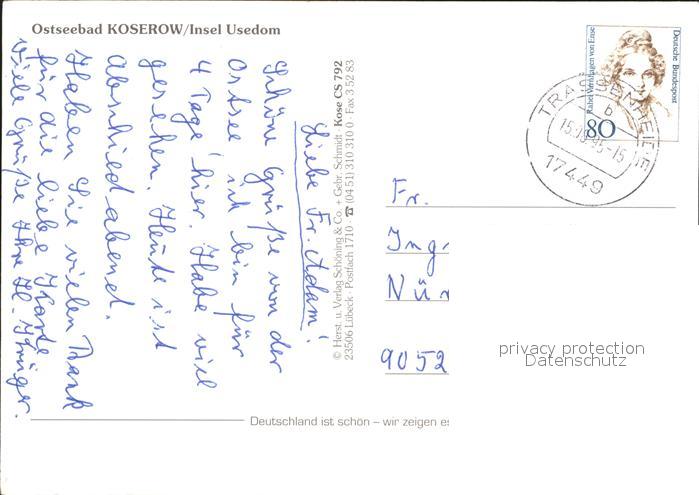 Ostseebad KOSEROW/Insel Usedom
Liebe Fr. Adam!
Schöne Grüße von der
Ostsee ich bin für
4 Tage hier. Habe viel
gesehen. Heute ist
Abschiedabend.
Haben Sie vielen Dank
für die liebe Karte
Viele Grüße Ihre H. Krüger.
© Herst. u. Verlag Schöning & Co. + Gebr. Schmidt · Kose CS 792
23506 Lübeck · Postfach 1710 · ☎ (04 51) 310 310 0 · Fax 3 52 83
Rahel Varnhagen von Ense
Deutsche Bundespost
80
TRASSENHEIDE
b
17449
Fr.
Ing
Nür
9052
privacy protection
Datenschutz
Deutschland ist schön – wir zeigen es